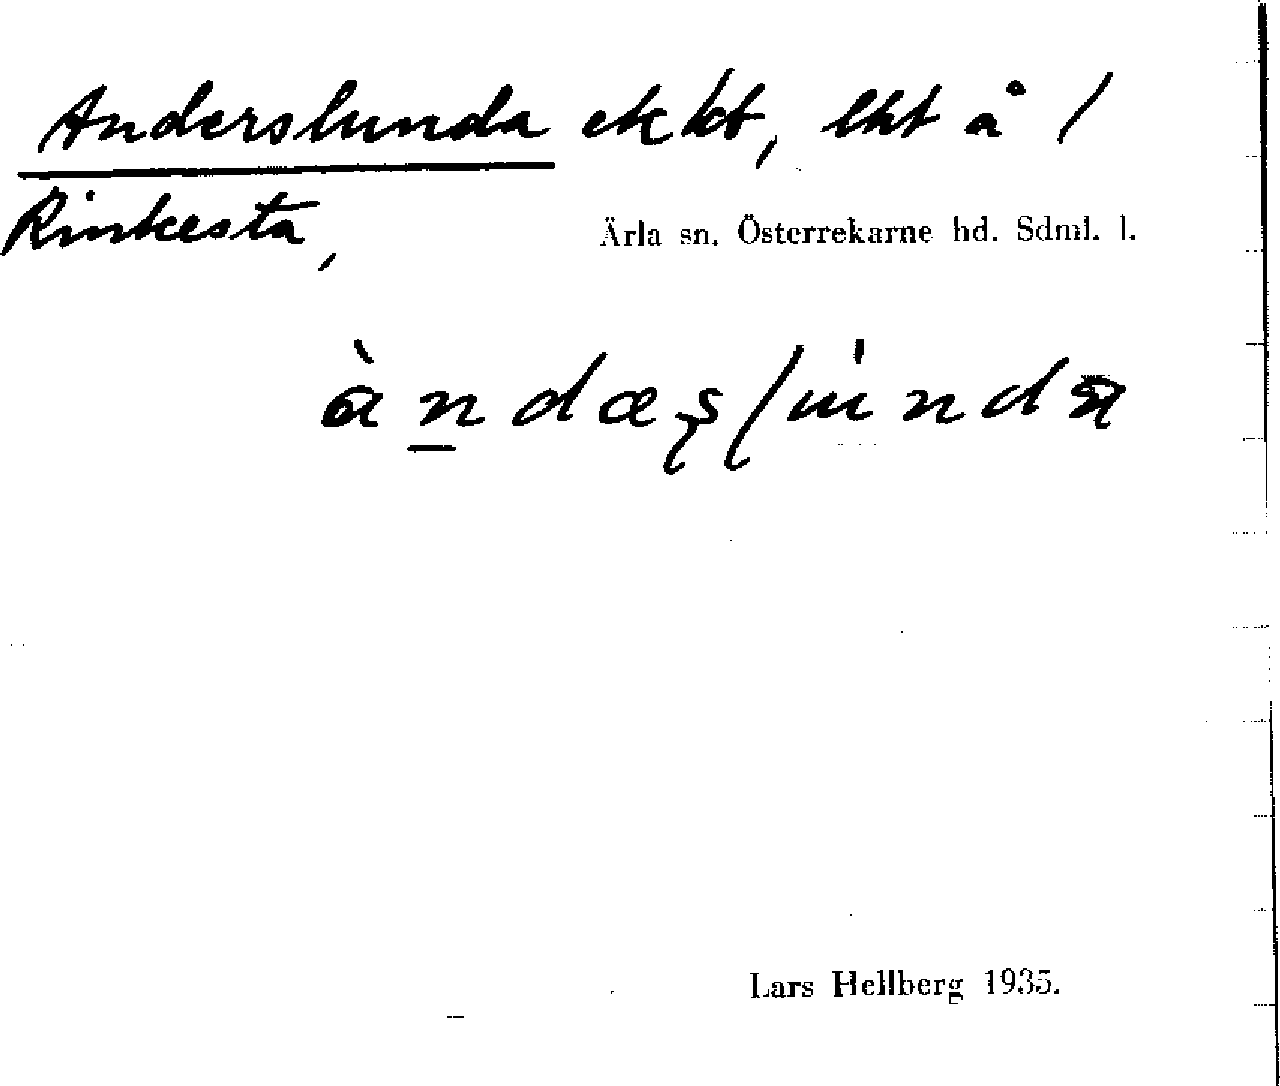 Anderslunda ekkt, lht å 1
Rinkesta,
Ärla sn. Österrekarne hd. Sdml. l.
àndæşlu̍nda
Lars Hellberg 1935.